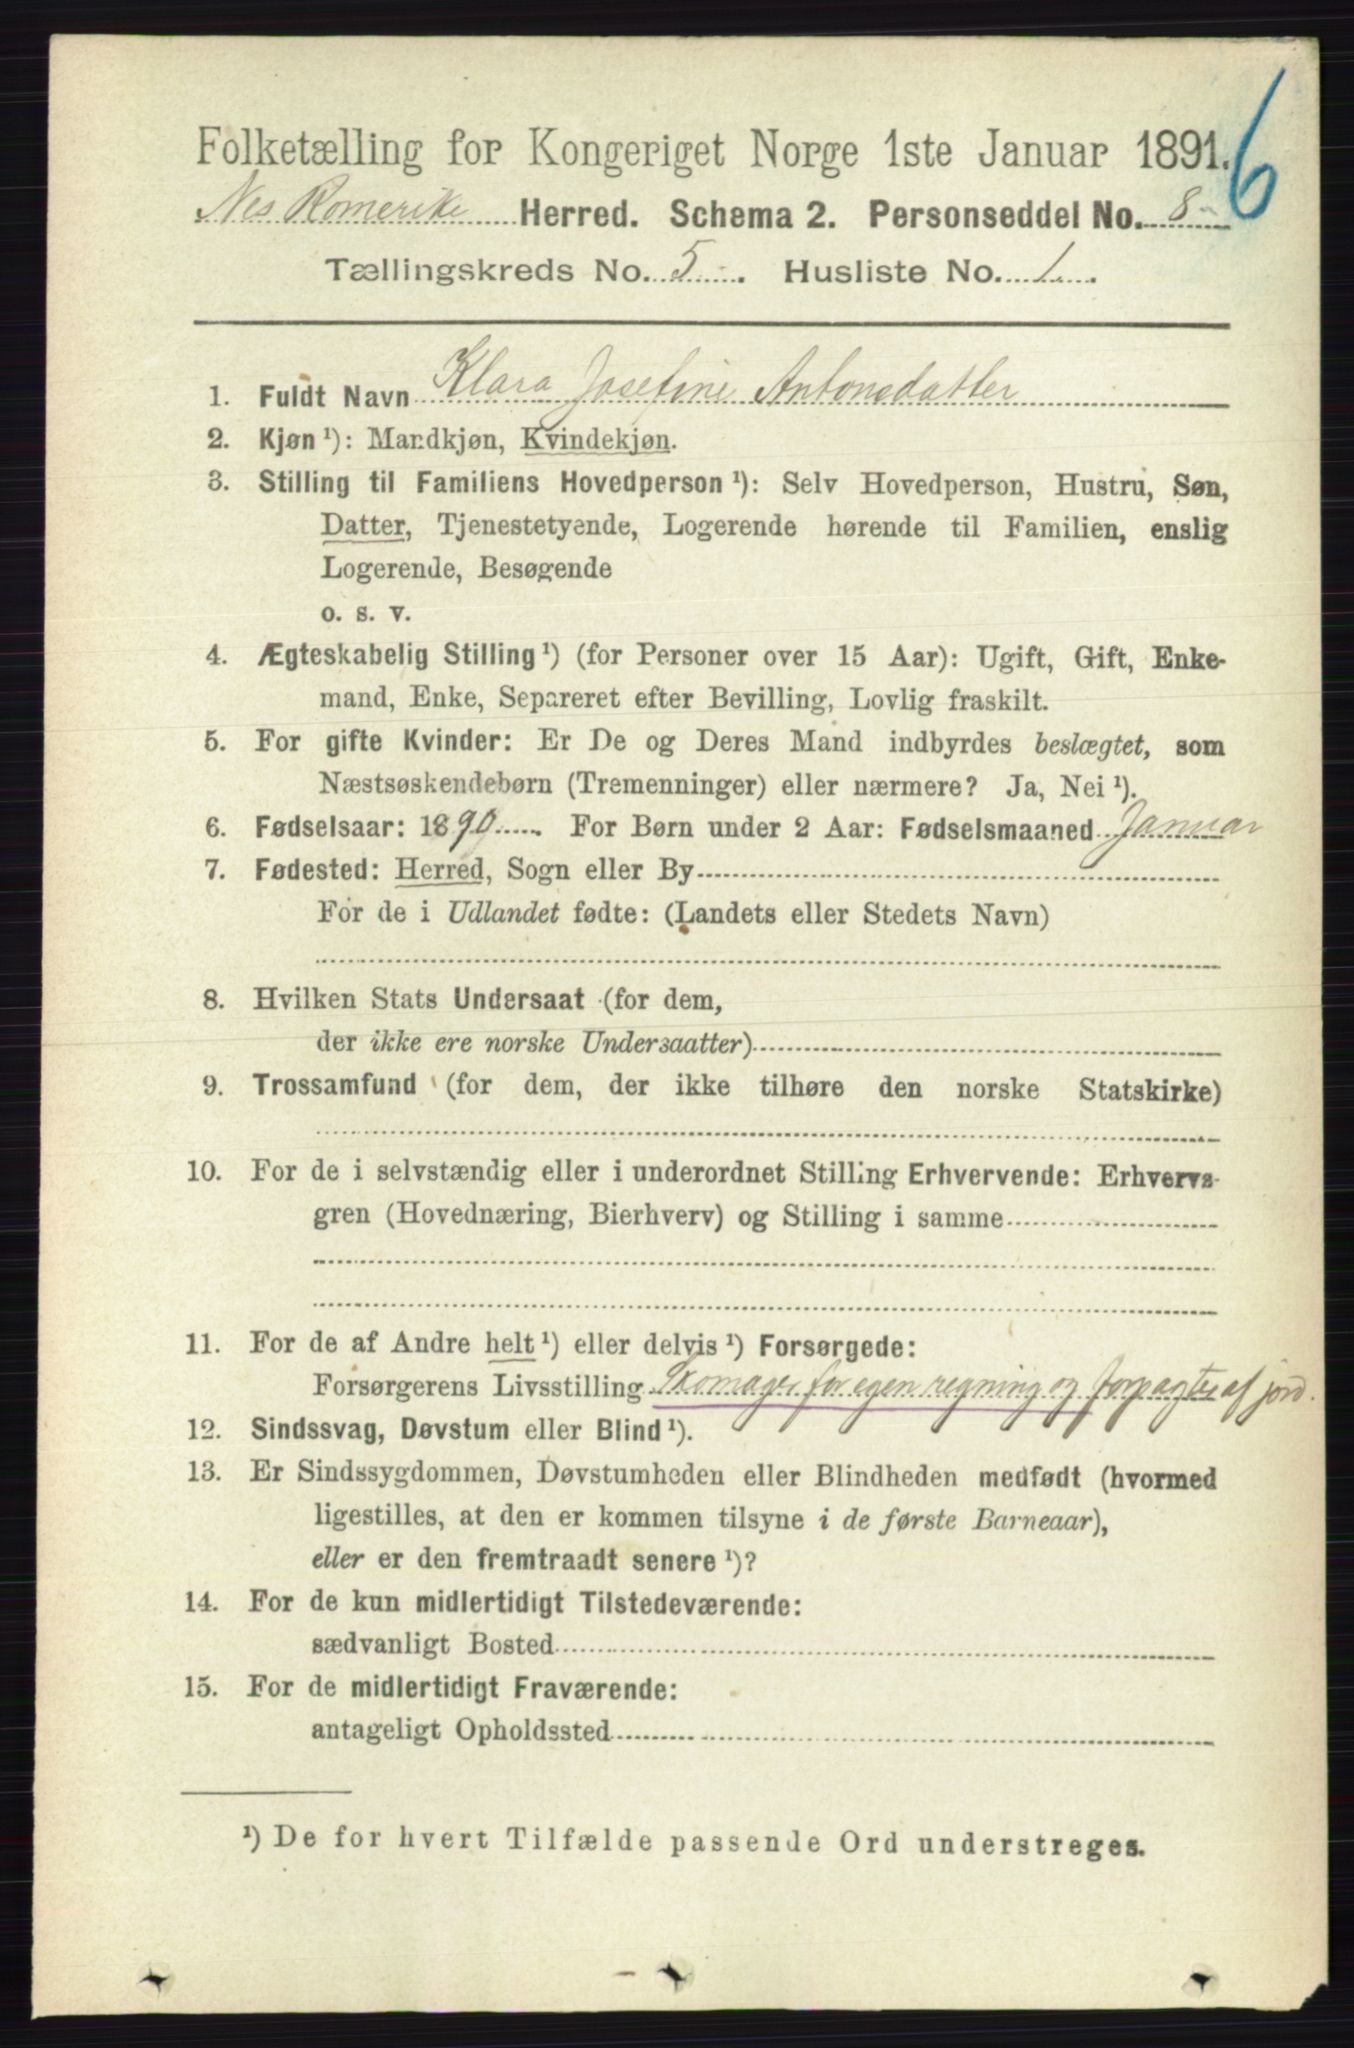 6
Folketælling for Kongeriget Norge 1ste Januar 1891.
Nes Romerike Herred. Schema 2. Personseddel No. 8
Tællingskreds No. 5. Husliste No. 1.
1. Fuldt Navn Klara Josefine Antonsdatter
2. Kjøn ¹): Mandkjøn, Kvindekjøn.
3. Stilling til Familiens Hovedperson ¹): Selv Hovedperson, Hustru, Søn,
Datter, Tjenestetyende, Logerende hørende til Familien, enslig
Logerende, Besøgende
o. s. v.
4. Ægteskabelig Stilling ¹) (for Personer over 15 Aar): Ugift, Gift, Enke-
mand, Enke, Separeret efter Bevilling, Lovlig fraskilt.
5. For gifte Kvinder: Er De og Deres Mand indbyrdes beslægtet, som
Næstsøskendebørn (Tremenninger) eller nærmere? Ja, Nei ¹).
6. Fødselsaar: 1890. For Børn under 2 Aar: Fødselsmaaned Januar
7. Fødested: Herred, Sogn eller By
For de i Udlandet fødte: (Landets eller Stedets Navn)
8. Hvilken Stats Undersaat (for dem,
der ikke ere norske Undersaatter)
9. Trossamfund (for dem, der ikke tilhøre den norske Statskirke)
10. For de i selvstændig eller i underordnet Stilling Erhvervende: Erhvervs-
gren (Hovednæring, Bierhverv) og Stilling i samme
11. For de af Andre helt ¹) eller delvis ¹) Forsørgede:
Forsørgerens Livsstilling Skomager for egen regning og forpagter af jord.
12. Sindssvag, Døvstum eller Blind ¹).
13. Er Sindssygdommen, Døvstumheden eller Blindheden medfødt (hvormed
ligestilles, at den er kommen tilsyne i de første Barneaar),
eller er den fremtraadt senere ¹)?
14. For de kun midlertidigt Tilstedeværende:
sædvanligt Bosted
15. For de midlertidigt Fraværende:
antageligt Opholdssted
¹) De for hvert Tilfælde passende Ord understreges.